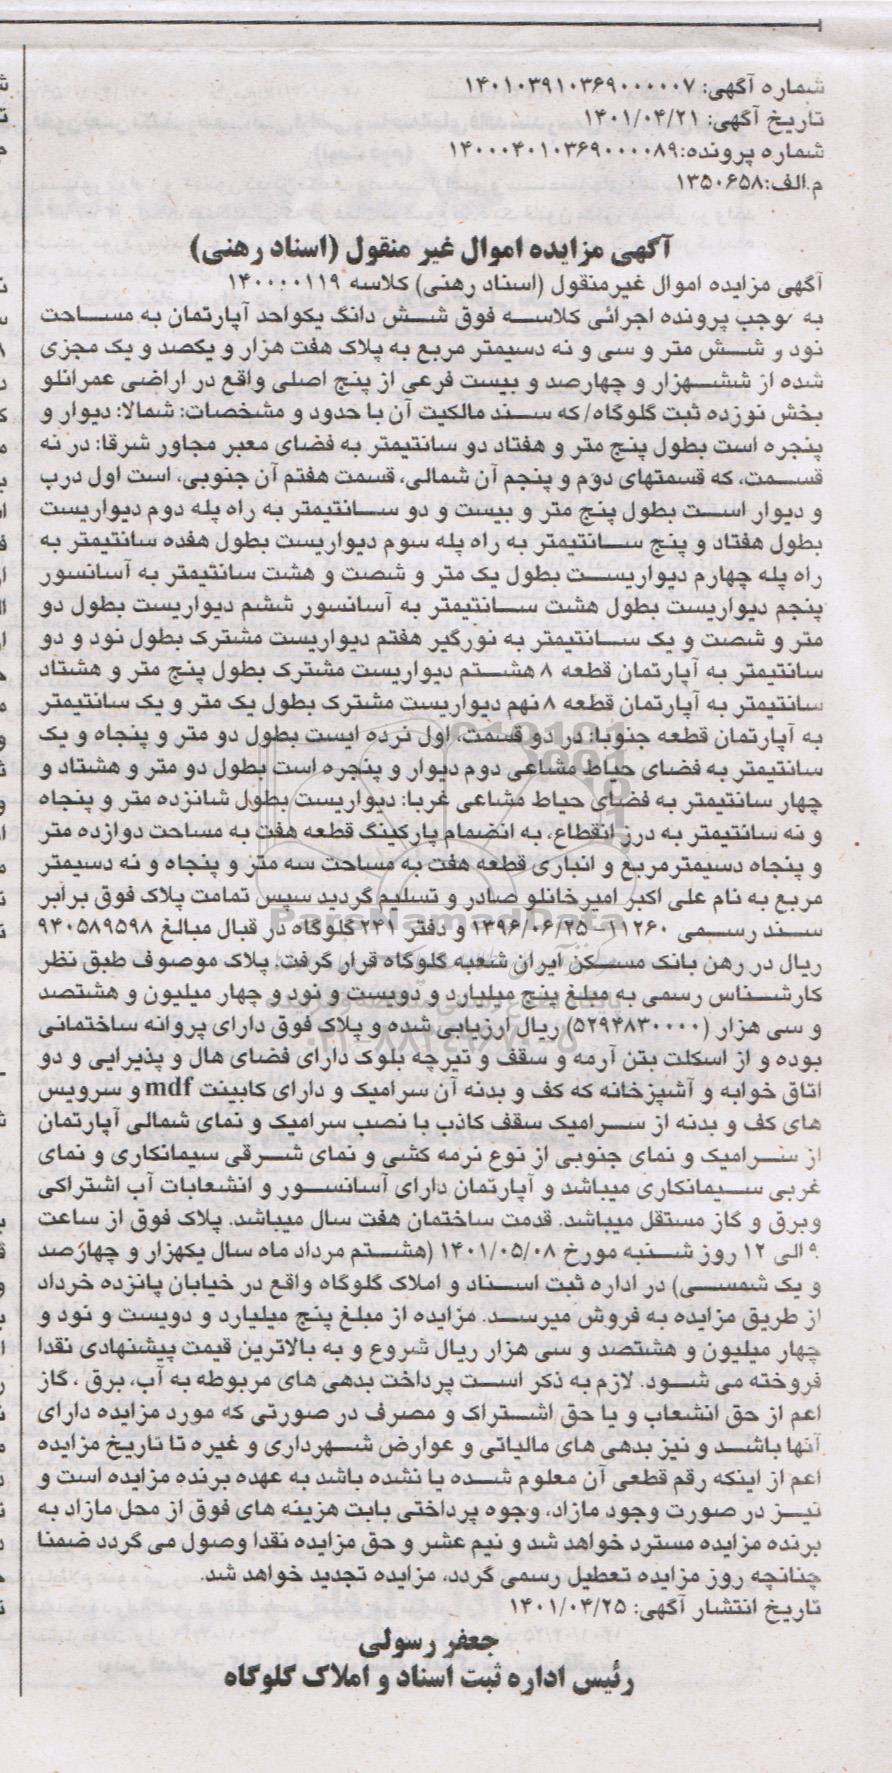 شماره آگهی: ۱۴۰۱۰۳۹۱۰۳۶۹۰۰۰۰۰۷
تاریخ آگهی: ۱۴۰۱/۰۴/۲۱
شماره پرونده:۱۴۰۰۰۴۰۱۰۳۶۹۰۰۰۰۸۹
م.الف:۱۳۵۰۶۵۸
آگهی مزایده اموال غیر منقول (اسناد رهنی)
آگهی مزایده اموال غیرمنقول (اسناد رهنی) کلاسه ۱۴۰۰۰۰۱۱۹
به موجب پرونده اجرائی کلاسه فوق شش دانگ یکواحد آپارتمان به مساحت
نود و شش متر و سی و نه دسیمتر مربع به پلاک هفت هزار و یکصد و یک مجزی
شده از ششهزار و چهارصد و بیست فرعی از پنج اصلی واقع در اراضی عمرانلو
بخش نوزده ثبت گلوگاه/ که سند مالکیت آن با حدود و مشخصات: شمالا: دیوار و
پنجره است بطول پنج متر و هفتاد دو سانتیمتر به فضای معبر مجاور شرقا: در نه
قسمت، که قسمتهای دوم و پنجم آن شمالی، قسمت هفتم آن جنوبی، است اول درب
و دیوار است بطول پنج متر و بیست و دو سانتیمتر به راه پله دوم دیواریست
بطول هفتاد و پنج سانتیمتر به راه پله سوم دیواریست بطول هفده سانتیمتر به
راه پله چهارم دیواریست بطول یک متر و شصت و هشت سانتیمتر به آسانسور
پنجم دیواریست بطول هشت سانتیمتر به آسانسور ششم دیواریست بطول دو
متر و شصت و یک سانتیمتر به نورگیر هفتم دیواریست مشترک بطول نود و دو
سانتیمتر به آپارتمان قطعه ۸ هشتم دیواریست مشترک بطول پنج متر و هشتاد
سانتیمتر به آپارتمان قطعه ۸ نهم دیواریست مشترک بطول یک متر و یک سانتیمتر
به آپارتمان قطعه جنوبا: در دو قسمت، اول نرده ایست بطول دو متر و پنجاه و یک
سانتیمتر به فضای حیاط مشاعی دوم دیوار و پنجره است بطول دو متر و هشتاد و
چهار سانتیمتر به فضای حیاط مشاعی غربا: دیواریست بطول شانزده متر و پنجاه
و نه سانتیمتر به درز انقطاع، به انضمام پارکینگ قطعه هفت به مساحت دوازده متر
و پنجاه دسیمترمربع و انباری قطعه هفت به مساحت سه متر و پنجاه و نه دسیمتر
مربع به نام علی اکبر امیرخانلو صادر و تسلیم گردید سپس تمامت پلاک فوق برابر
سند رسمی ۱۱۲۶۰-۱۳۹۶/۰۶/۲۵ و دفتر ۲۴۱ گلوگاه در قبال مبالغ ۹۴۰۵۸۹۵۹۸
ریال در رهن بانک مسکن ایران شعبه گلوگاه قرار گرفت، پلاک موصوف طبق نظر
کارشناس رسمی به مبلغ پنج میلیارد و دویست و نود و چهار میلیون و هشتصد
و سی هزار (۵۲۹۴۸۳۰۰۰۰) ریال ارزیابی شده و پلاک فوق دارای پروانه ساختمانی
بوده و از اسکلت بتن آرمه و سقف و تیرچه بلوک دارای فضای هال و پذیرایی و دو
اتاق خوابه و آشپزخانه که کف و بدنه آن سرامیک و دارای کابینت mdf و سرویس
های کف و بدنه از سرامیک سقف کاذب با نصب سرامیک و نمای شمالی آپارتمان
از سرامیک و نمای جنوبی از نوع نرمه کشی و نمای شرقی سیمانکاری و نمای
غربی سیمانکاری میباشد و آپارتمان دارای آسانسور و انشعابات آب اشتراکی
وبرق و گاز مستقل میباشد. قدمت ساختمان هفت سال میباشد. پلاک فوق از ساعت
۹ الی ۱۲ روز شنبه مورخ ۱۴۰۱/۰۵/۰۸ (هشتم مرداد ماه سال یکهزار و چهارصد
و یک شمسی) در اداره ثبت اسناد و املاک گلوگاه واقع در خیابان پانزده خرداد
از طریق مزایده به فروش میرسد. مزایده از مبلغ پنج میلیارد و دویست و نود و
چهار میلیون و هشتصد و سی هزار ریال شروع و به بالاترین قیمت پیشنهادی نقدا
فروخته می شود. لازم به ذکر است پرداخت بدهی های مربوطه به آب، برق ، گاز
اعم از حق انشعاب و یا حق اشتراک و مصرف در صورتی که مورد مزایده دارای
آنها باشد و نیز بدهی های مالیاتی و عوارض شهرداری و غیره تا تاریخ مزایده
اعم از اینکه رقم قطعی آن معلوم شده یا نشده باشد به عهده برنده مزایده است و
نیز در صورت وجود مازاد، وجوه پرداختی بابت هزینه های فوق از محل مازاد به
برنده مزایده مسترد خواهد شد و نیم عشر و حق مزایده نقدا وصول می گردد ضمنا
چنانچه روز مزایده تعطیل رسمی گردد، مزایده تجدید خواهد شد.
تاریخ انتشار آگهی: ۱۴۰۱/۰۴/۲۵
جعفر رسولی
رئیس اداره ثبت اسناد و املاک گلوگاه
ParsNamadData